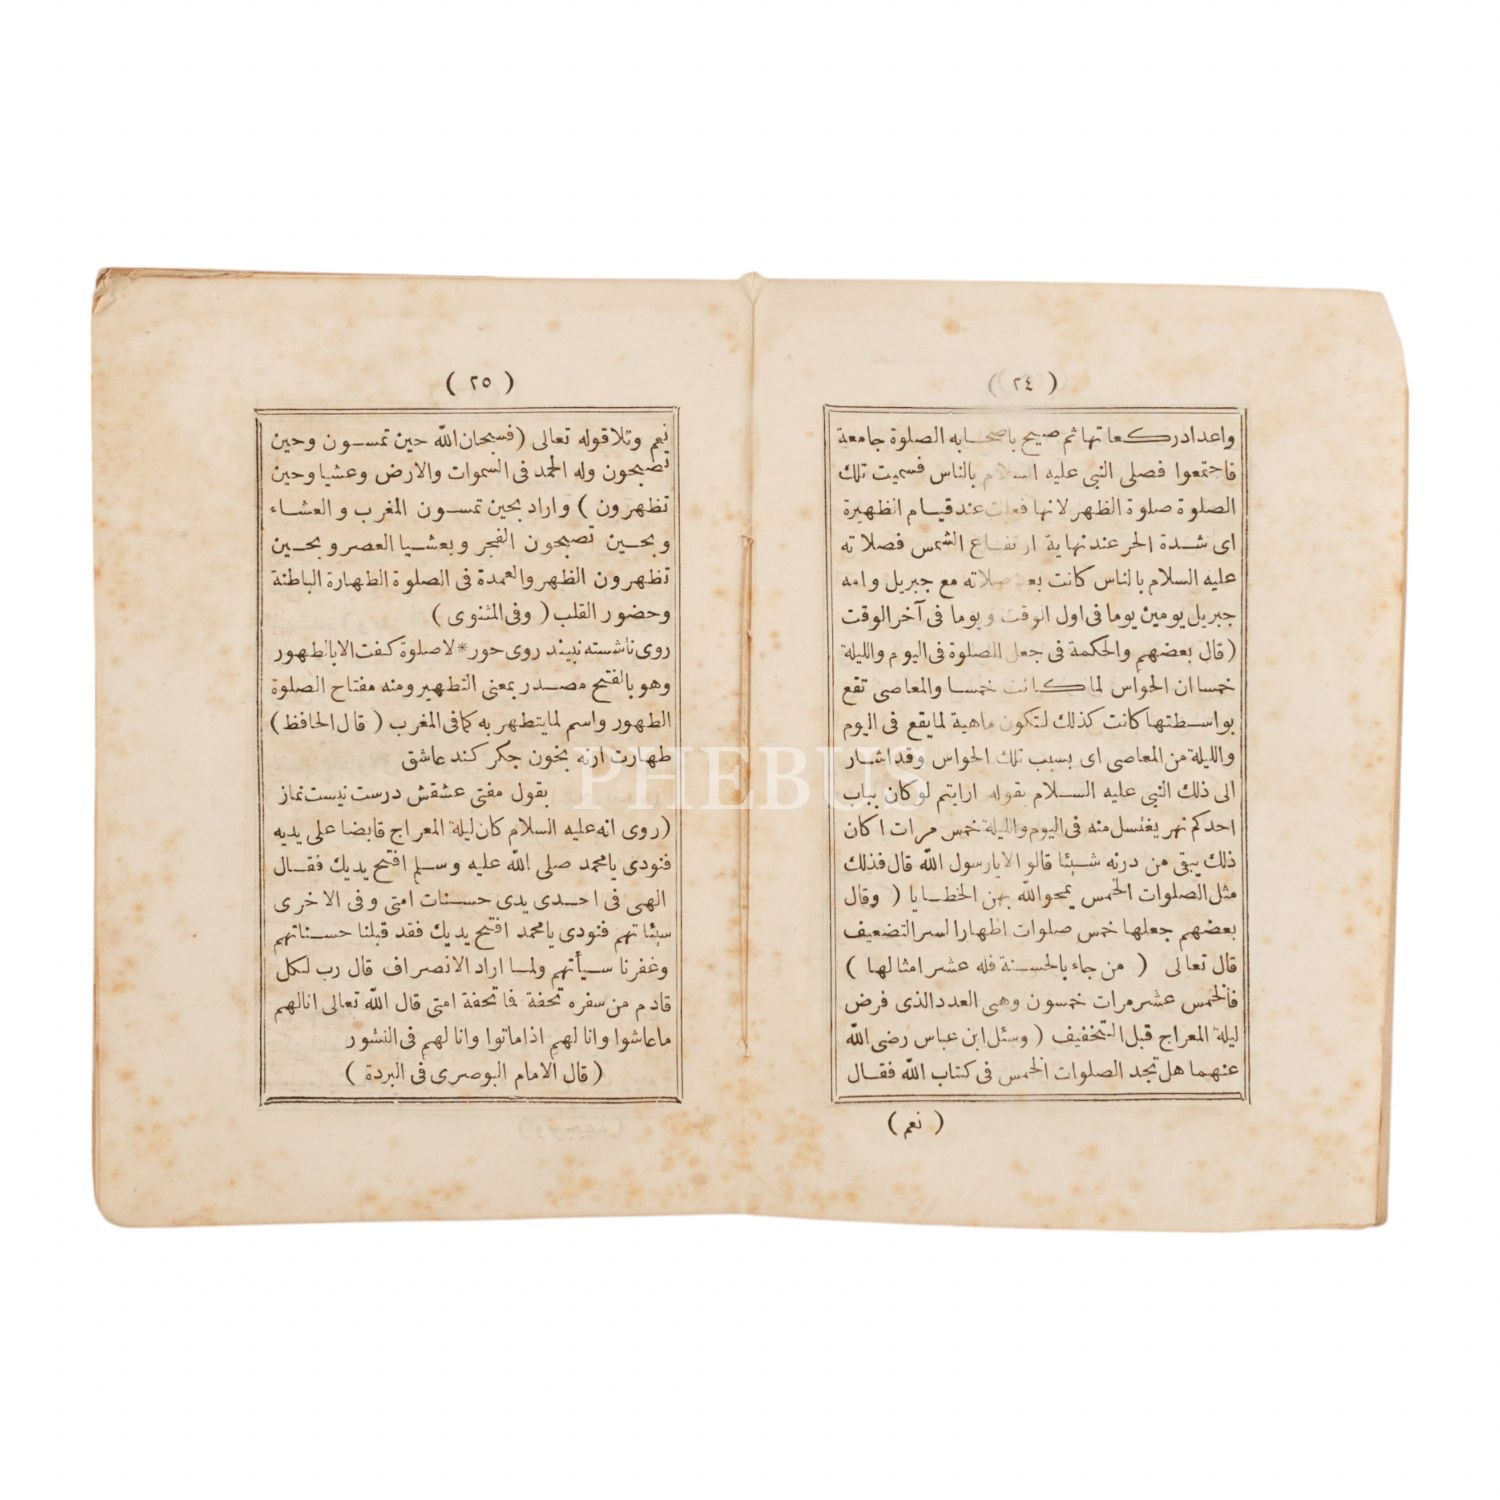 ( ٢٤ )
واعداد ركعاتها ثم صيح باصحابه الصلوة جامعة
فاجتمعوا فصلى النبي عليه السلام بالناس فسميت تلك
الصلوة صلوة الظهر لانها فعلت عند قيام الظهيرة
اى شدة الحر عند نهاية ارتفاع الشمس فصلاته
عليه السلام بالناس كانت بعد صلاته مع جبريل وامه
جبريل يومين يوما فى اول الوقت ويوما فى آخر الوقت
( قال بعضهم والحكمة فى جعل الصلوة فى اليوم والليلة
خمسا ان الحواس لما كانت خمسا والمعاصى تقع
بواسطتها كانت كذلك لتكون ماهية لما يقع فى اليوم
والليلة من المعاصى اى بسبب تلك الحواس وقد اشار
الى ذلك النبى عليه السلام بقوله ارايتم لو كان بباب
احدكم نهر يغتسل منه فى اليوم والليلة خمس مرات اكان
ذلك يبقى من درنه شيئا قالو الا يارسول الله قال فذلك
مثل الصلوات الخمس يمحو الله بهن الخطايا ( وقال
بعضهم جعلها خمس صلوات اظهارا لسر التضعيف
قال تعالى ( من جاء بالحسنة فله عشر امثالها )
فالخمس عشر مرات خمسون وهى العدد الذى فرض
ليلة المعراج قبل التخفيف ( وسئل ابن عباس رضى الله
عنهما هل تجد الصلوات الخمس فى كتاب الله فقال
( نعم )
( ٢٥ )
نعم وتلا قوله تعالى ( فسبحان الله حين تمسون وحين
تصبحون وله الحمد فى السموات والارض وعشيا وحين
تظهرون ) واراد بحين تمسون المغرب والعشاء
وبحين تصبحون الفجر وبعشيا العصر وبحين
تظهرون الظهر والعمدة فى الصلوة الطهارة الباطنة
وحضور القلب ( وفى المثنوى )
روى ناشسته نبيند روى حور * لا صلوة كفت الا بالطهور
وهو بالفتح مصدر بمعنى التطهير ومنه مفتاح الصلوة
الطهور واسم لما يتطهر به كما فى المغرب ( قال الحافظ )
طهارت ارنه بخون جكر كند عاشق
بقول مفتى عشقش درست نيست نماز
( روى انه عليه السلام كان ليلة المعراج قابضا على يديه
فنودى يا محمد صلى الله عليه وسلم افتح يديك فقال
الهى فى احدى يدى حسنات امتى وفى الاخرى
سيئاتهم فنودى يا محمد افتح يديك فقد قبلنا حسناتهم
وغفرنا سيأتهم ولما اراد الانصراف قال رب لكل
قادم من سفره تحفة فا تحفة امتى قال الله تعالى انا لهم
ما عاشوا وانا لهم اذا ماتوا وانا لهم فى النشور
( قال الامام البوصرى فى البردة )
PHEBUS